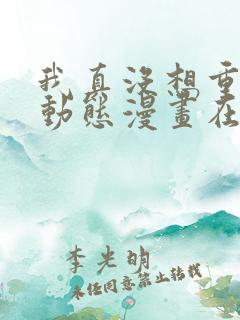 我真没想重
動態漫畫在
李光明
未经同意禁止转载